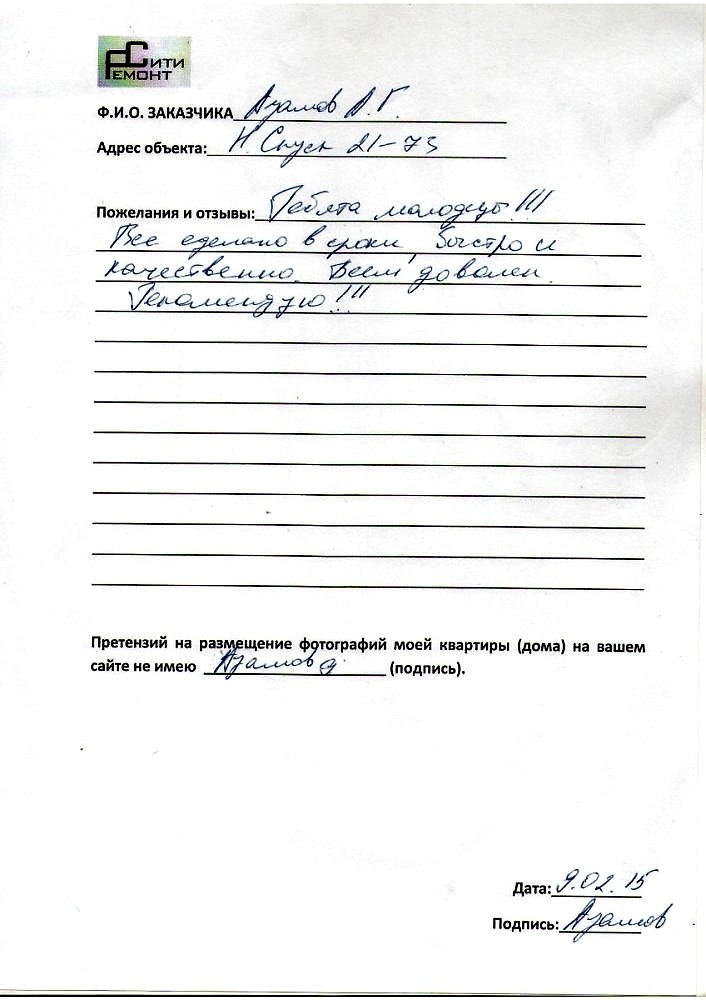 Сити
Ремонт
Ф.И.О. ЗАКАЗЧИКА Азамов А.Г.
Адрес объекта: Н. Спуск 21-73
Пожелания и отзывы: Ребята молодцы!!!
Все сделано в сроки, быстро и
качественно. Всем доволен.
Рекомендую!!!
Претензий на размещение фотографий моей квартиры (дома) на вашем
сайте не имею Азамов (подпись).
Дата: 9.02.15
Подпись: Азамов